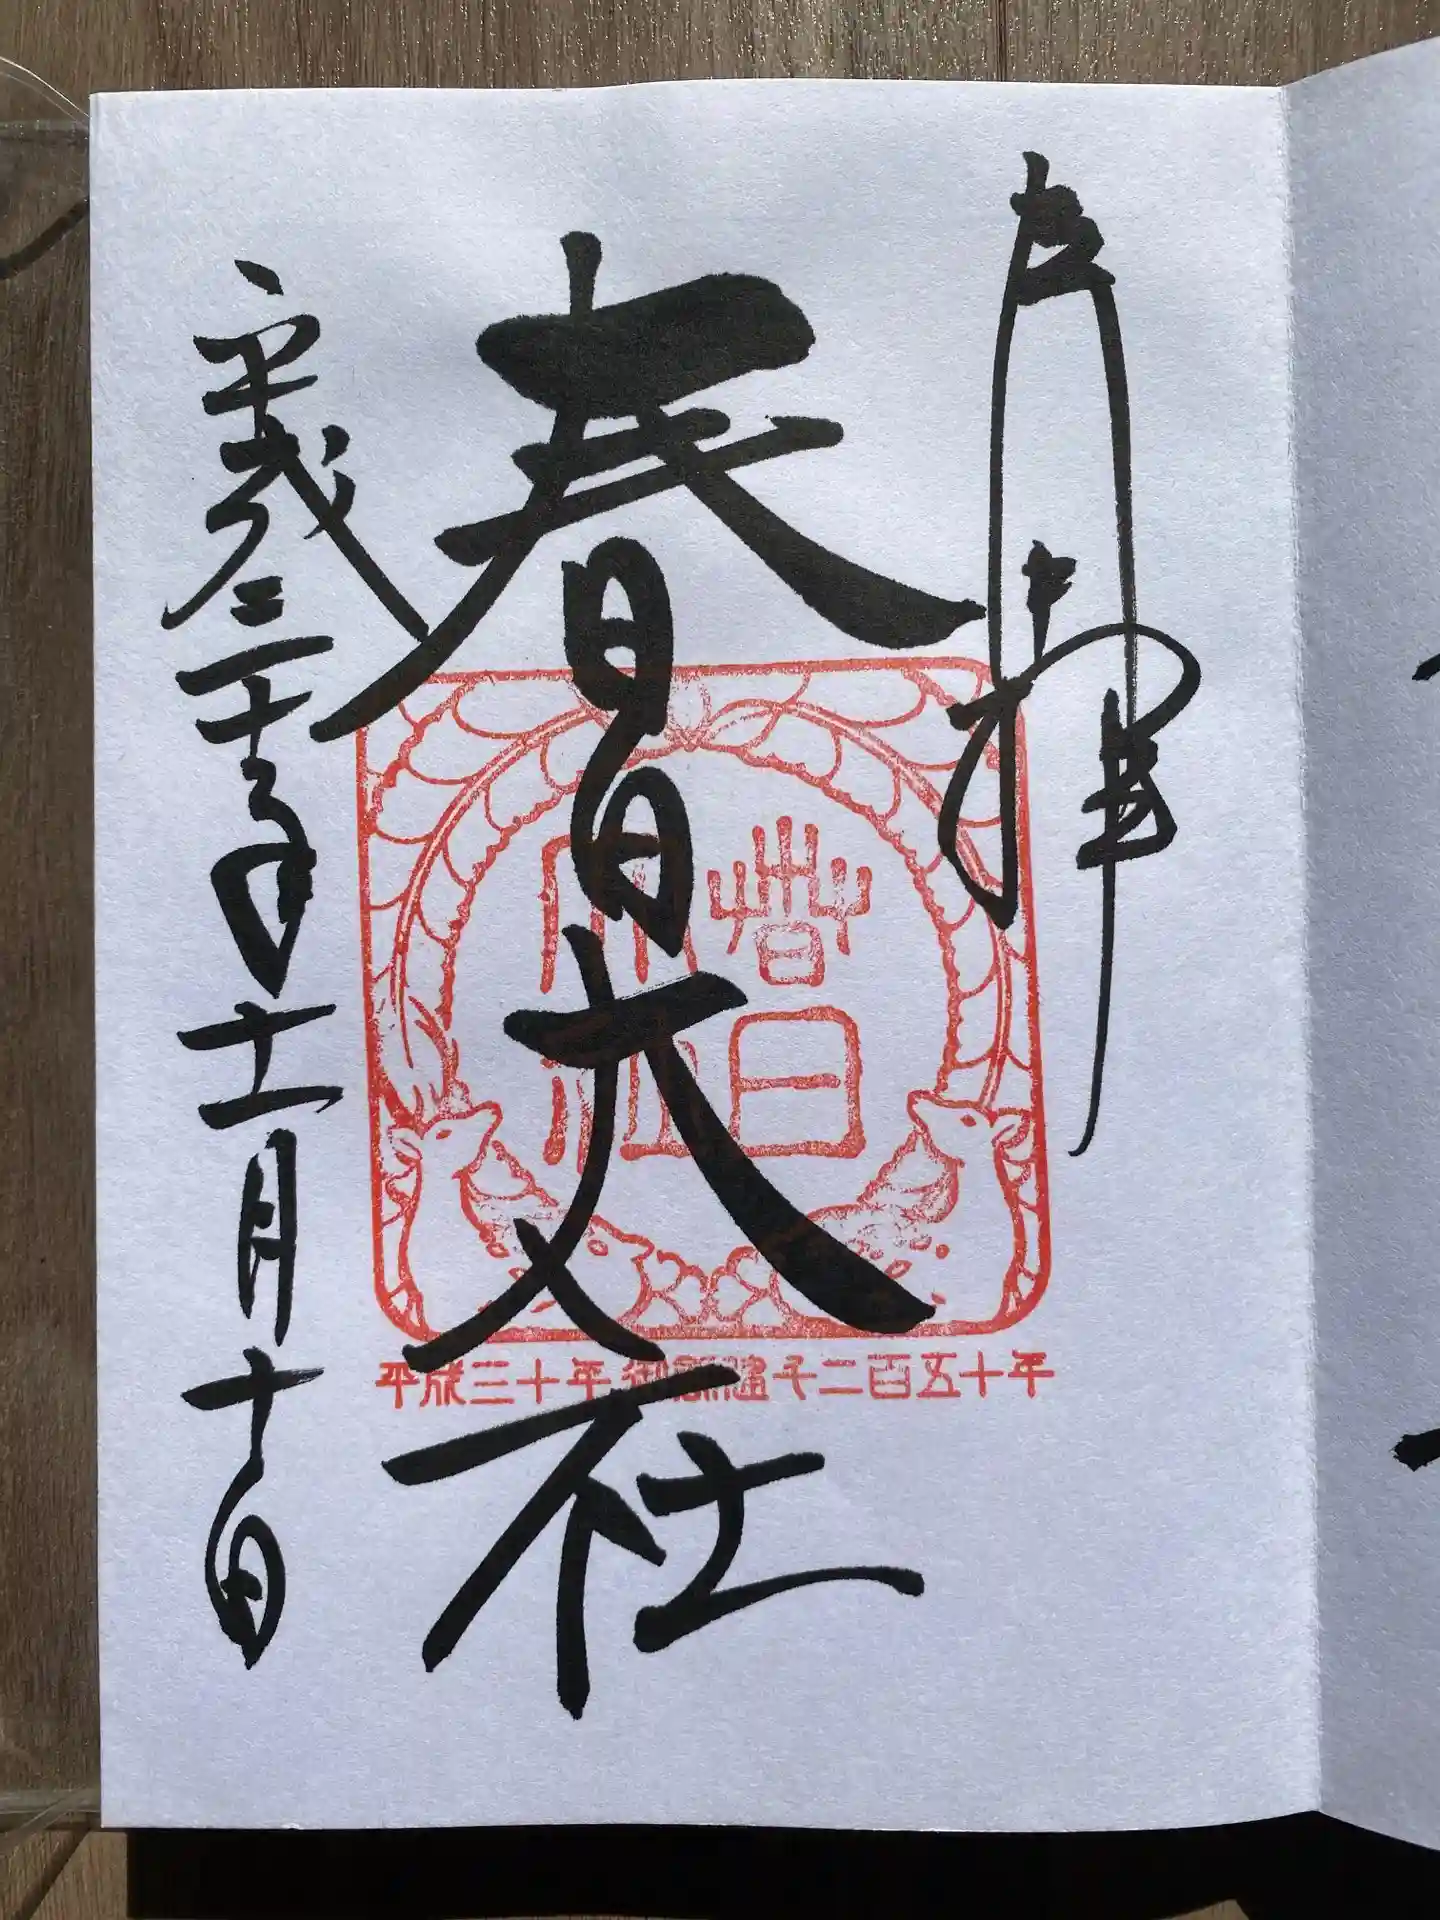 奉拝
春日大社
春日大社
平成三十年御創建千二百五十年
平成三十年十一月十日